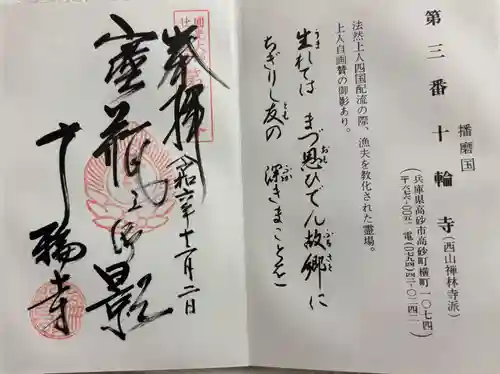 第三番十輪寺(西山禅林寺派)
播磨国
(兵庫県高砂市高砂町横町一〇七四)
法然上人四国配流の際、漁夫を教化された霊場。
上人自画賛の御影あり。
生れては まづ思ひでん故郷に
ちぎりし友の 深きまことを
奉拝
令和六年十一月二日
十輪寺